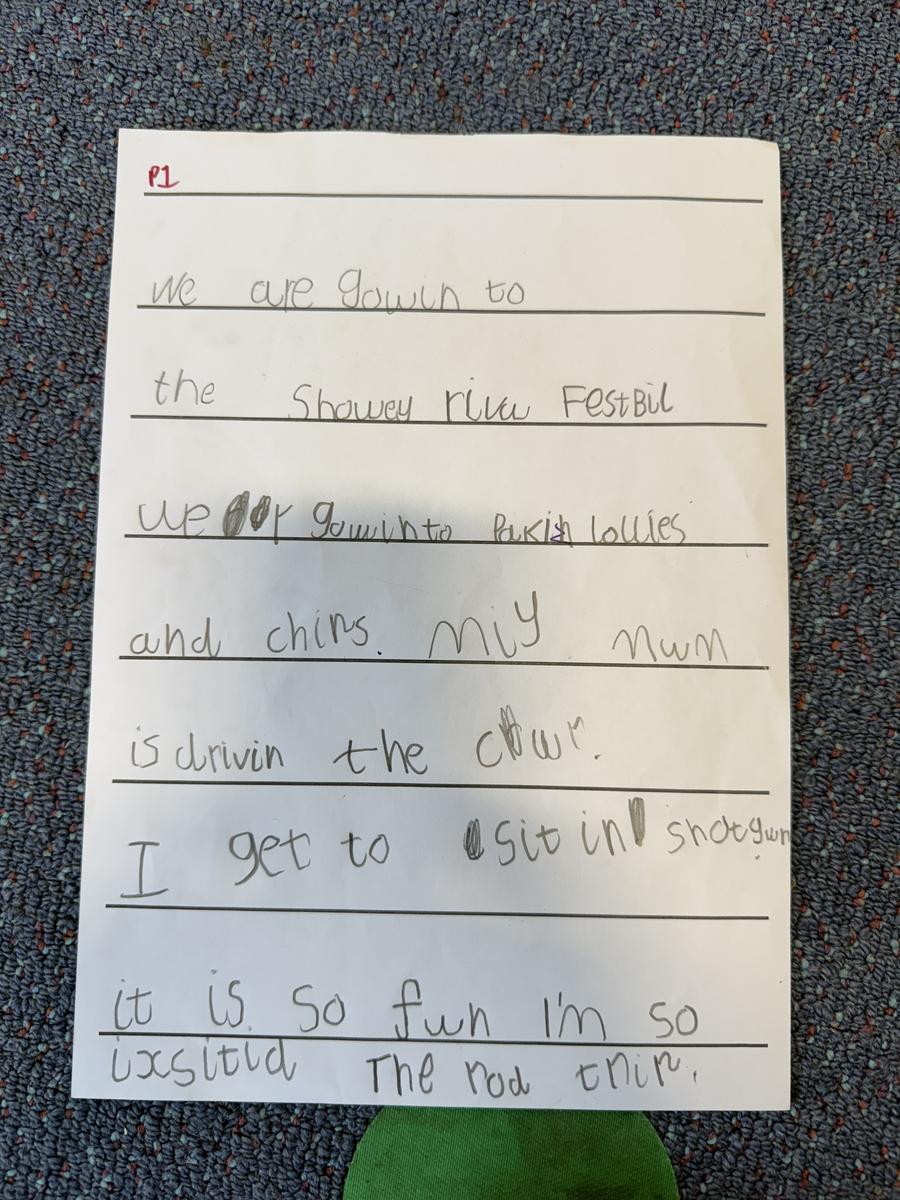 P1
we are gowin to
the Showey riva FestBil
we r gowin to Pakin lollies
and chips. Miy mum
is drivin the cwr.
I get to sit in shotgwn
it is so fwn I'm so
ixsitid The rod trip.